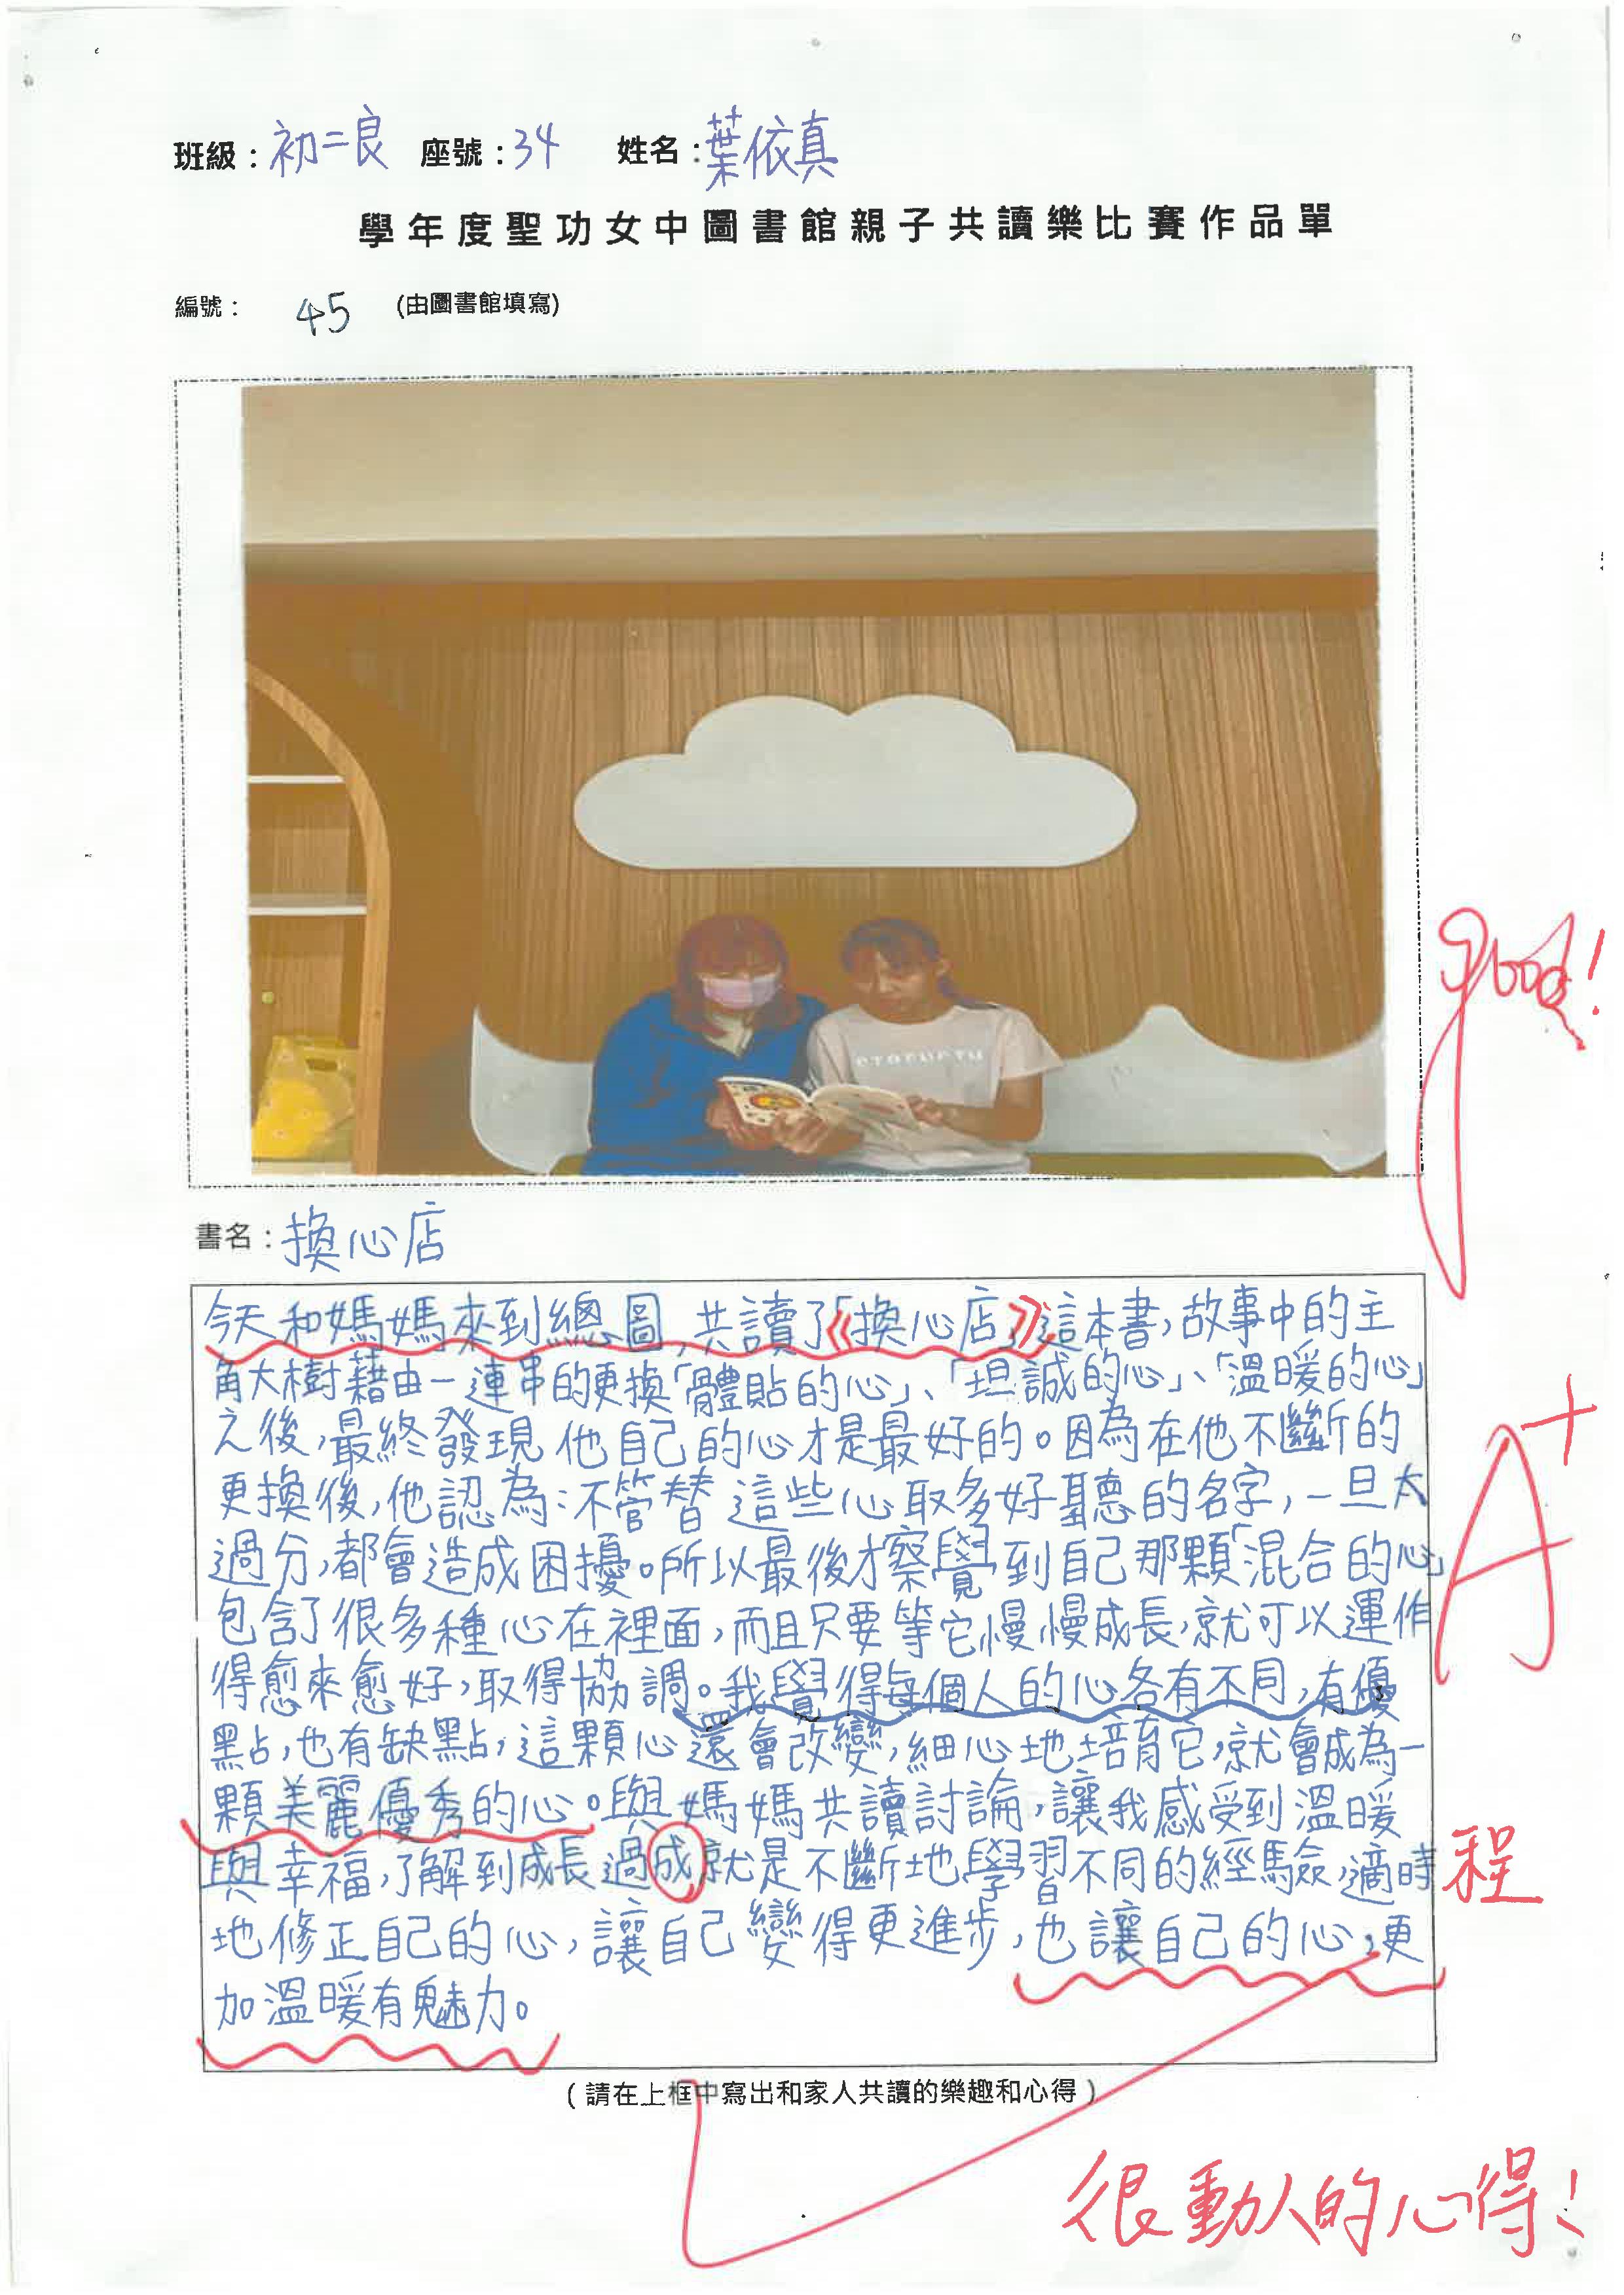 班級：初二良 座號：34 姓名：葉依真
學年度聖功女中圖書館親子共讀樂比賽作品單
編號： 45 (由圖書館填寫)
good!
書名：換心店
今天和媽媽來到總圖，共讀了《「換心店」》這本書，故事中的主
角大樹藉由一連串的更換「體貼的心」、「坦誠的心」、「溫暖的心」
之後，最終發現他自己的心才是最好的。因為在他不斷的
更換後，他認為：不管替這些心取多好聽的名字，一旦太
過分，都會造成困擾。所以最後才察覺到自己那顆「混合的心」
包含了很多種心在裡面，而且只要等它慢慢成長，就可以運作
得愈來愈好，取得協調。我覺得每個人的心各有不同，有優
點，也有缺點，這顆心還會改變，細心地培育它，就會成為一
顆美麗優秀的心。與媽媽共讀討論，讓我感受到溫暖
與幸福，了解到成長過成就是不斷地學習不同的經驗，適時
程
地修正自己的心，讓自己變得更進步，也讓自己的心，更
加溫暖有魅力。
A+
(請在上框中寫出和家人共讀的樂趣和心得)
很動人的心得！